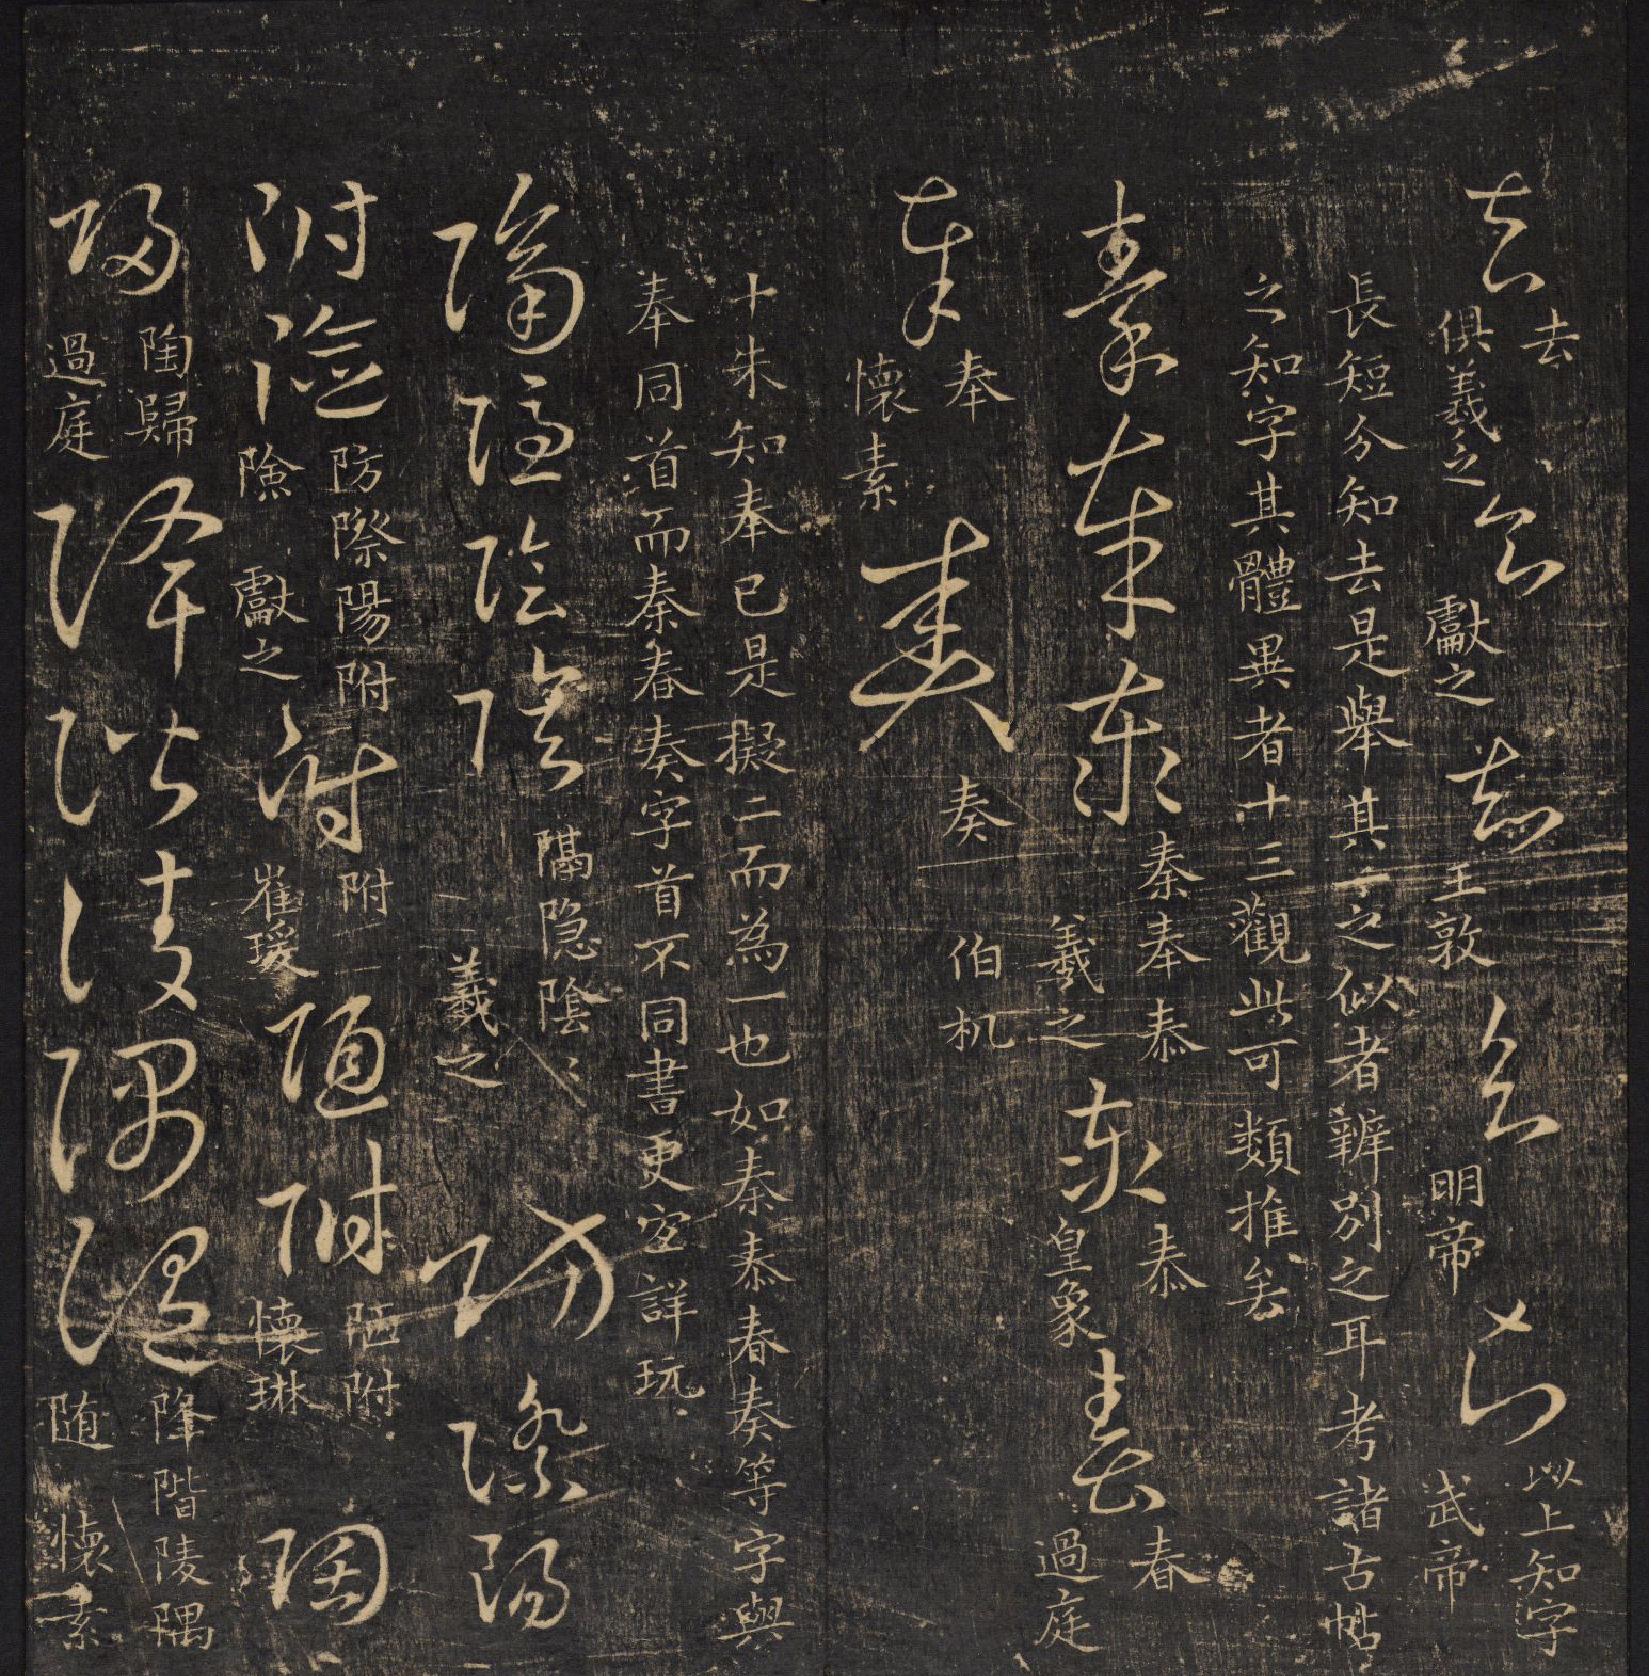 去 去 俱羲之 知 獻之 知 王敦 知 明帝 知 以上知字 武帝
長短分知去是舉其一之似者辨別之耳考諸古帖
之知字其體異者十三觀此可類推矣
秦奉泰 秦奉泰 羲之 泰 泰 皇象 春 春 過庭
奉 奉 懷素 奏 奏 伯机
十朱知奉已是擬二而為一也如秦泰春奏等字與
奉同首而秦春奏字首不同書更宜詳玩
隔隐陰陰 隔隐陰〻 羲之 防際陽
附險 防際陽附 險 獻之 附 附 崔瑗 陋附 陋附 懷琳 陶
歸 陶歸 過庭 降階陵隅随 降階陵隅 随 懷素